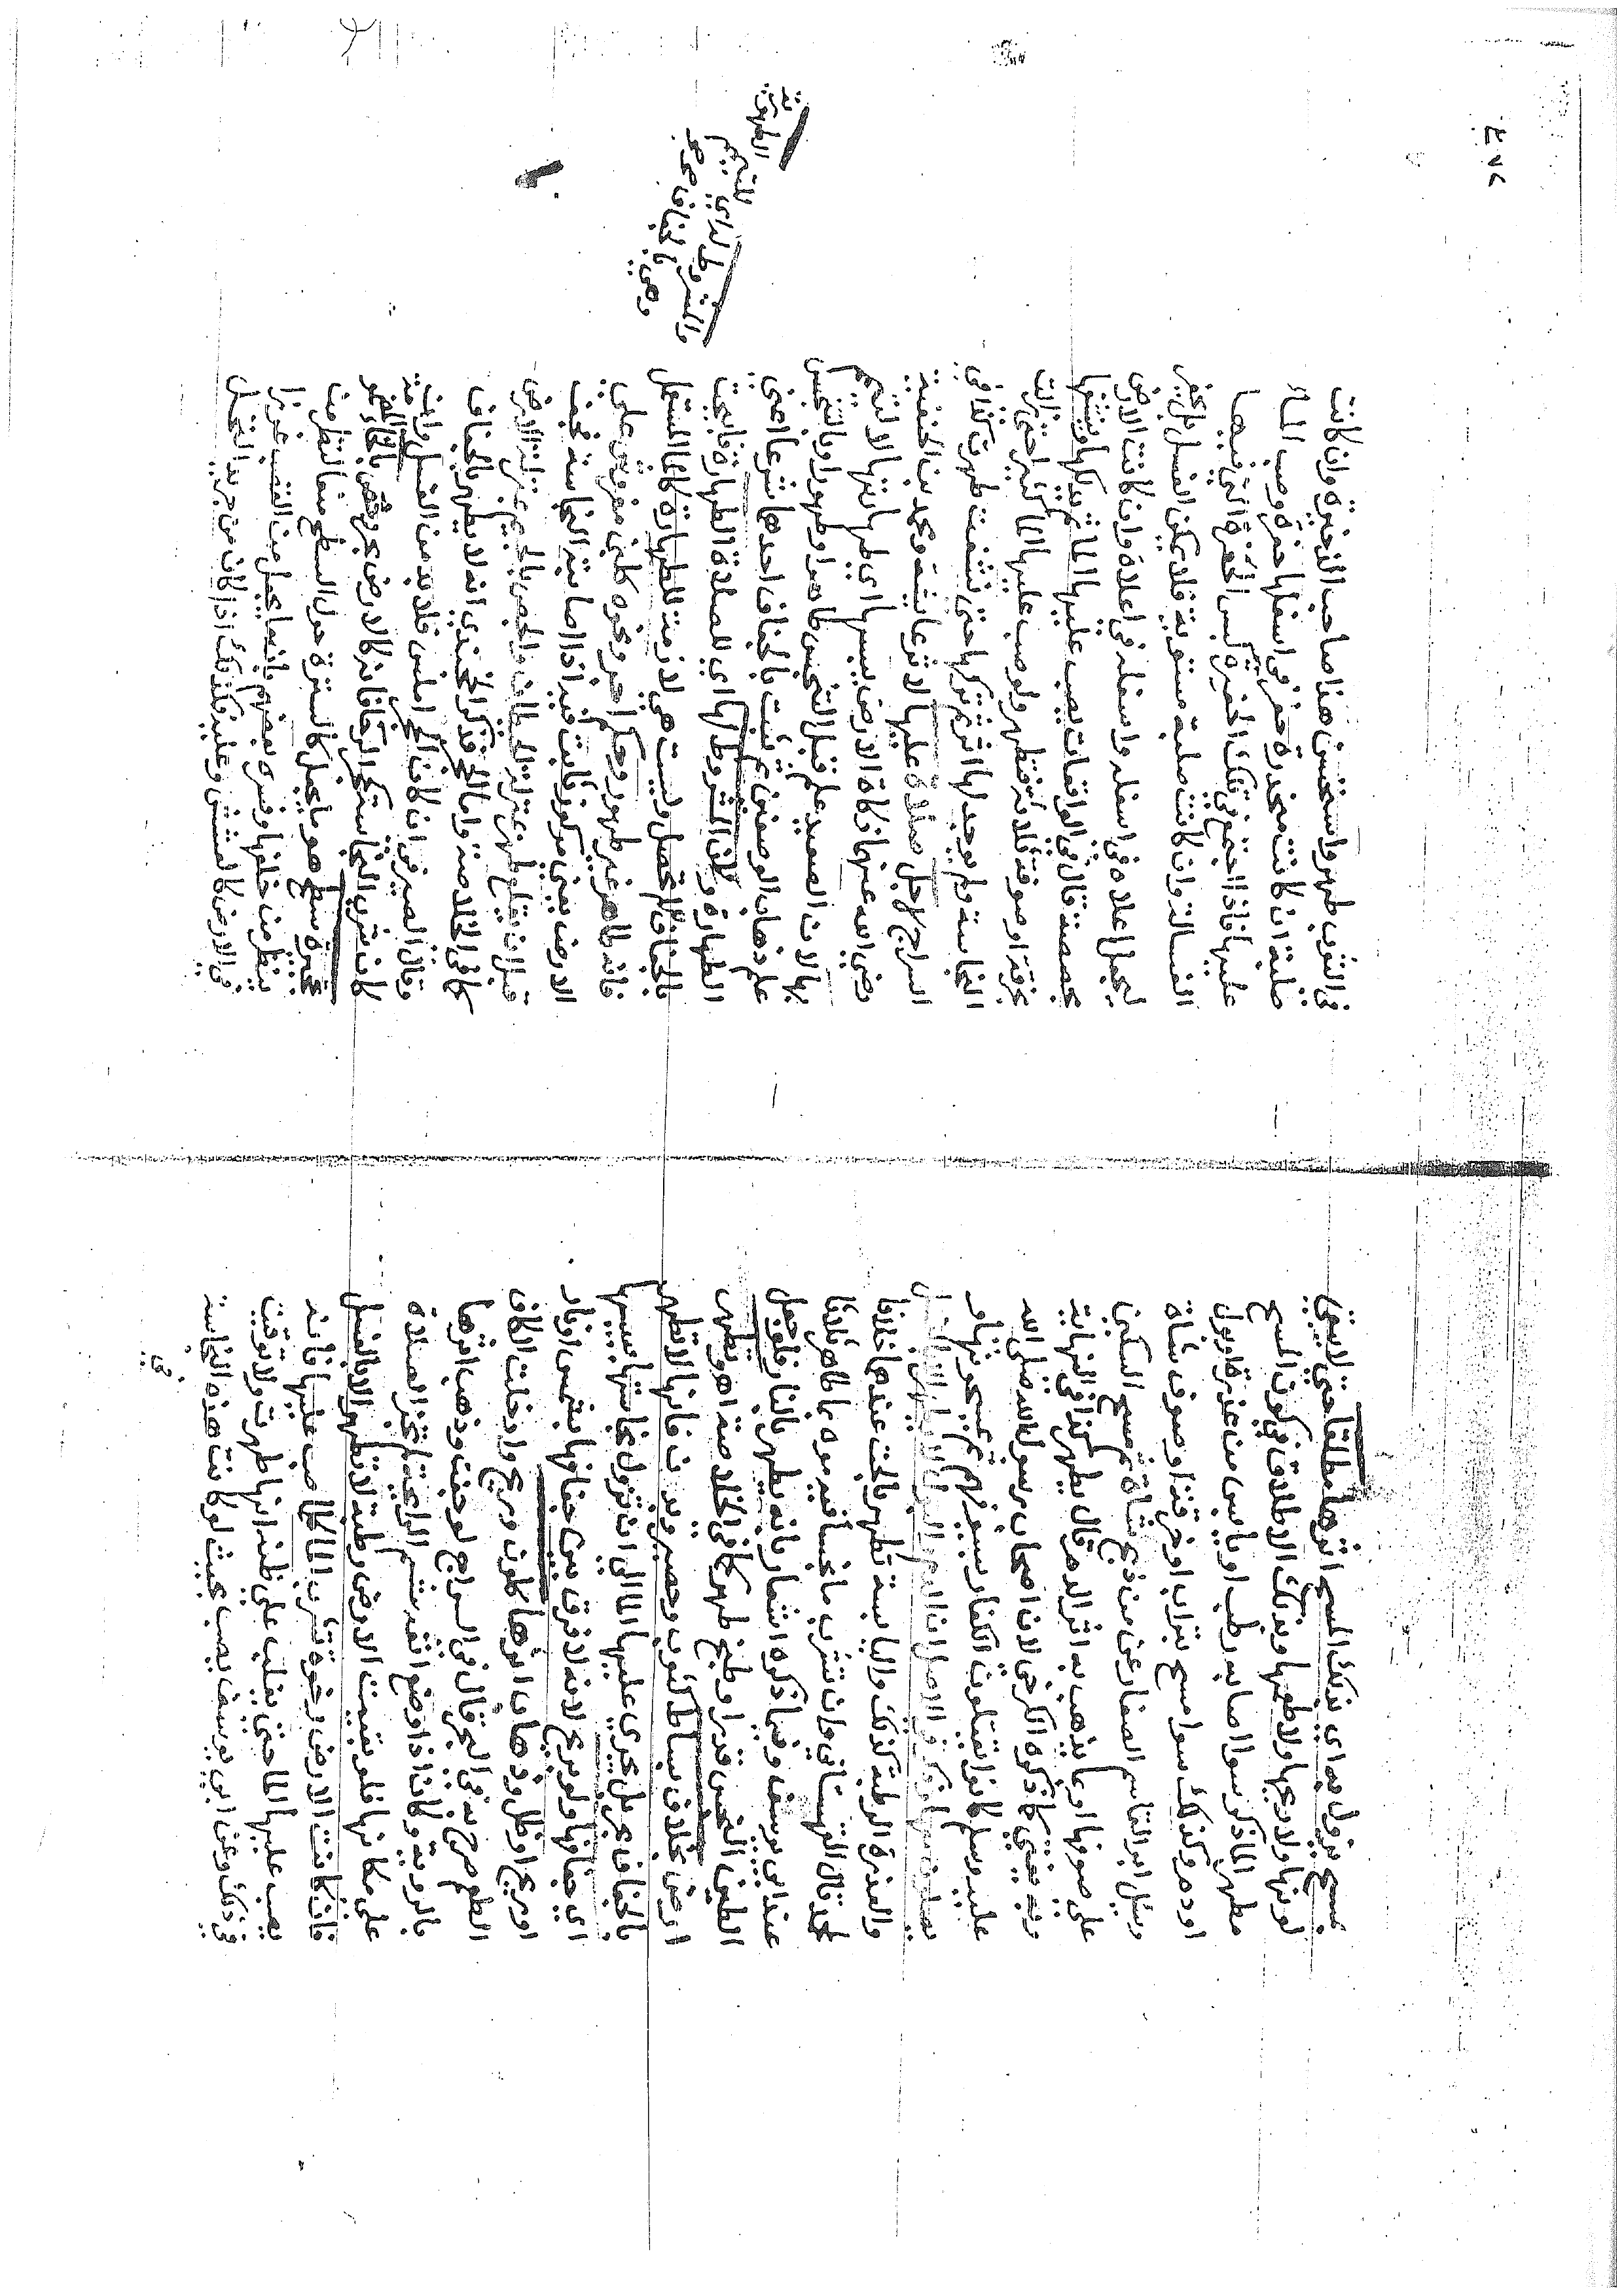 بمسح يزول به اي بذلك المسح اثرها مطلقا حتى لا يبقى
لونها ولا ريحها ولا طعمها وبذلك الاطلاق فيكون المسح
مطهرا لما ذكر سوا اصابه رطب او يابس من عذرة او بول
او دم وكذلك سوا مسح بتراب او خرقة او صوف شاة
وسئل ابو القاسم الصفار عمن ذبح شاة ثم مسح السكين
على صوفها او بما يذهب به اثر الدم قال يطهر كذا في النهاية
وبه يفتى كما ذكره الكرخي لان اصحاب رسول الله صلى الله
عليه وسلم كانوا يقتلون الكفار بسيوفهم ثم يمسحونها و
يصلون معها وذكر في الاصل ان البول والدم لا يطهر
والعذرة الرطبة كذلك واليابسة تطهر بالحت عندهما خلافا
لمحمد قال القهستاني وان شرب ما نجسا فيموه بما طاهر ثلاثا
عند ابي يوسف وفيما ذكره اشعار بانه يطهر بالنار فلو جعل
الطين النجس قدرا وطبخ طهر كما في الخلاصة اه وتطهر
ارض بخلاف بساط وثوب وحصير وبدن فانها لا تطهر
بالجفاف بل يجري عليها الما الى ان تزول نجاستها بيبسها
اي جفافها ولو بريح لانه لا فرق بين جفافها بشمس او نار
او ريح او ظل وذهاب اثرها كلون وريح وادخلت الكاف
الطعم صرح به في البحر قال في السراج لو جفت وذهب اثرها
بالروية وكان اذا وضع انفه يشم الرايحة لم تجز الصلاة
على مكانها فلو بقيت الارض رطبة لا تطهر الا بالغسل
فان كانت الارض رخوة تشرب الما كلما صب عليها فانه
يصب عليها الما حتى يغلب على ظنه انها طهرت ولا توقيت
في ذلك وعن ابي يوسف يصب بحيث لو كانت هذه النجاسة
في
في الثوب طهر واستحسن هذا صاحب الذخيرة وان كانت
صلبة ان كانت منحدرة حفر في اسفلها حفرة وصب الماء
عليها فاذا اجتمع في تلك الحفرة كبس الحفرة التي فيها
الغسالة وان كانت صلبة مستوية فلا يمكن الغسل بل يحفر
ليجعل اعلاه في اسفله واسفله في اعلاه وان كانت الارض
مجصصة قال في الواقعات يصب عليها الما ثم يدلكها وينشفها
بخرقة او صوفة ثلاثا فتطهر ولو صب عليها الما كثيرا حتى زالت
النجاسة ولم يوجد لها اثر ثم تركها حتى نشفت طهرت كذا في
السراج لاجل صلاة عليها لاثر عايشة ومحمد بن الحنفية
رضي الله عنهما زكاة الارض يبسها اي طهارتها لا لتيمم
بها لان الصعيد علم قبل التنجس طاهرا وطهورا وبالتنجس
علم ذهاب الوصفين ثم ثبت بالجفاف احدهما شرعا اعني
الطهارة ولان المشروط لها اي للصلاة الطهارة فابيحت
بالجفاف لم تحصل وليست هي لازمة للطهارة كالما المستعمل
فانه طاهر غير طهور وحكم اجر ونحوه كلبن مفروش على
الارض يعني مركوز ثابت فيه اذا اصابته النجاسة فجفت
قبل ان يقلع طهر بمنزلة الحائط والجص بالجيم بمنزلة الارض
كما في الخلاصة واما الحجر فذكر الخجندي انه لا يطهر بالجفاف
وقال الصيرفي ان كان الحجر املس فلا بد من الغسل وان
كان تشرب النجاسة كحجر الرحا فانه كالارض بحر وخص
حجيرة سطح هو ما يجعل كالسترة حول السطح منعا لنظر من
ينظر من خلفها وفسره بعضهم بانه ما يجعل من القصب
في الارض كالعشيش وعليه فكذلك اذا كان من جريد النخل
المشروط
للتيمم
الطهورية
وهي بالجفاف